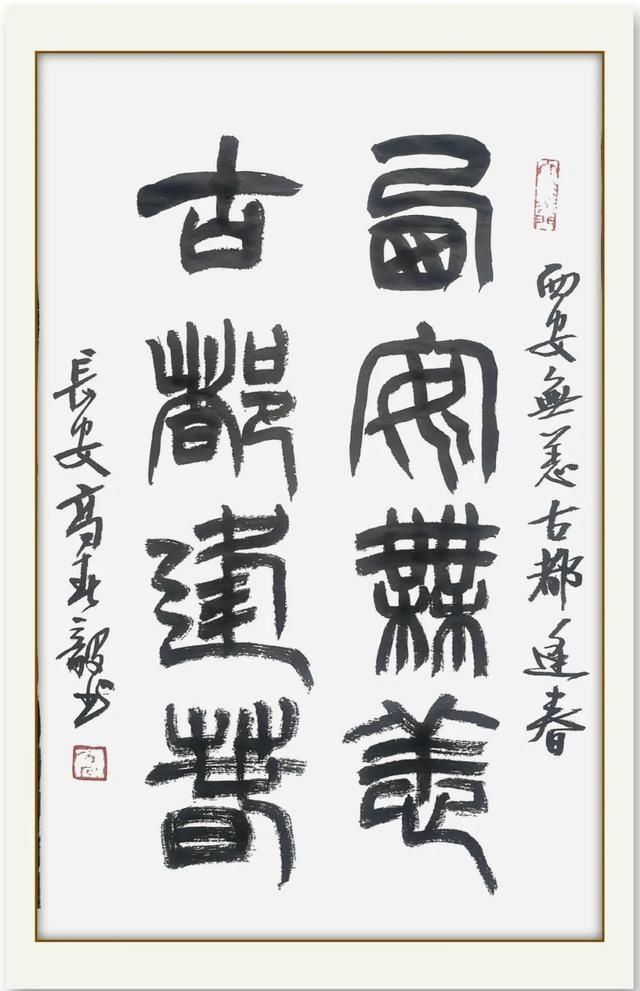 西安無恙古都逢春
西安無恙
古都逢春
長安高春毅书